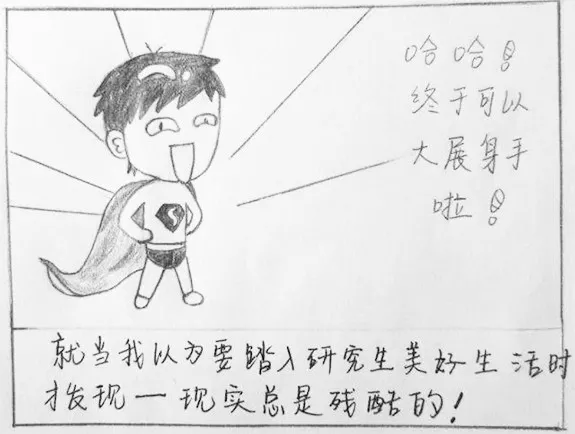 哈哈!
终于可以
大展身手
啦!
S
就当我以为要踏入研究生美好生活时
才发现一现实总是残酷的!